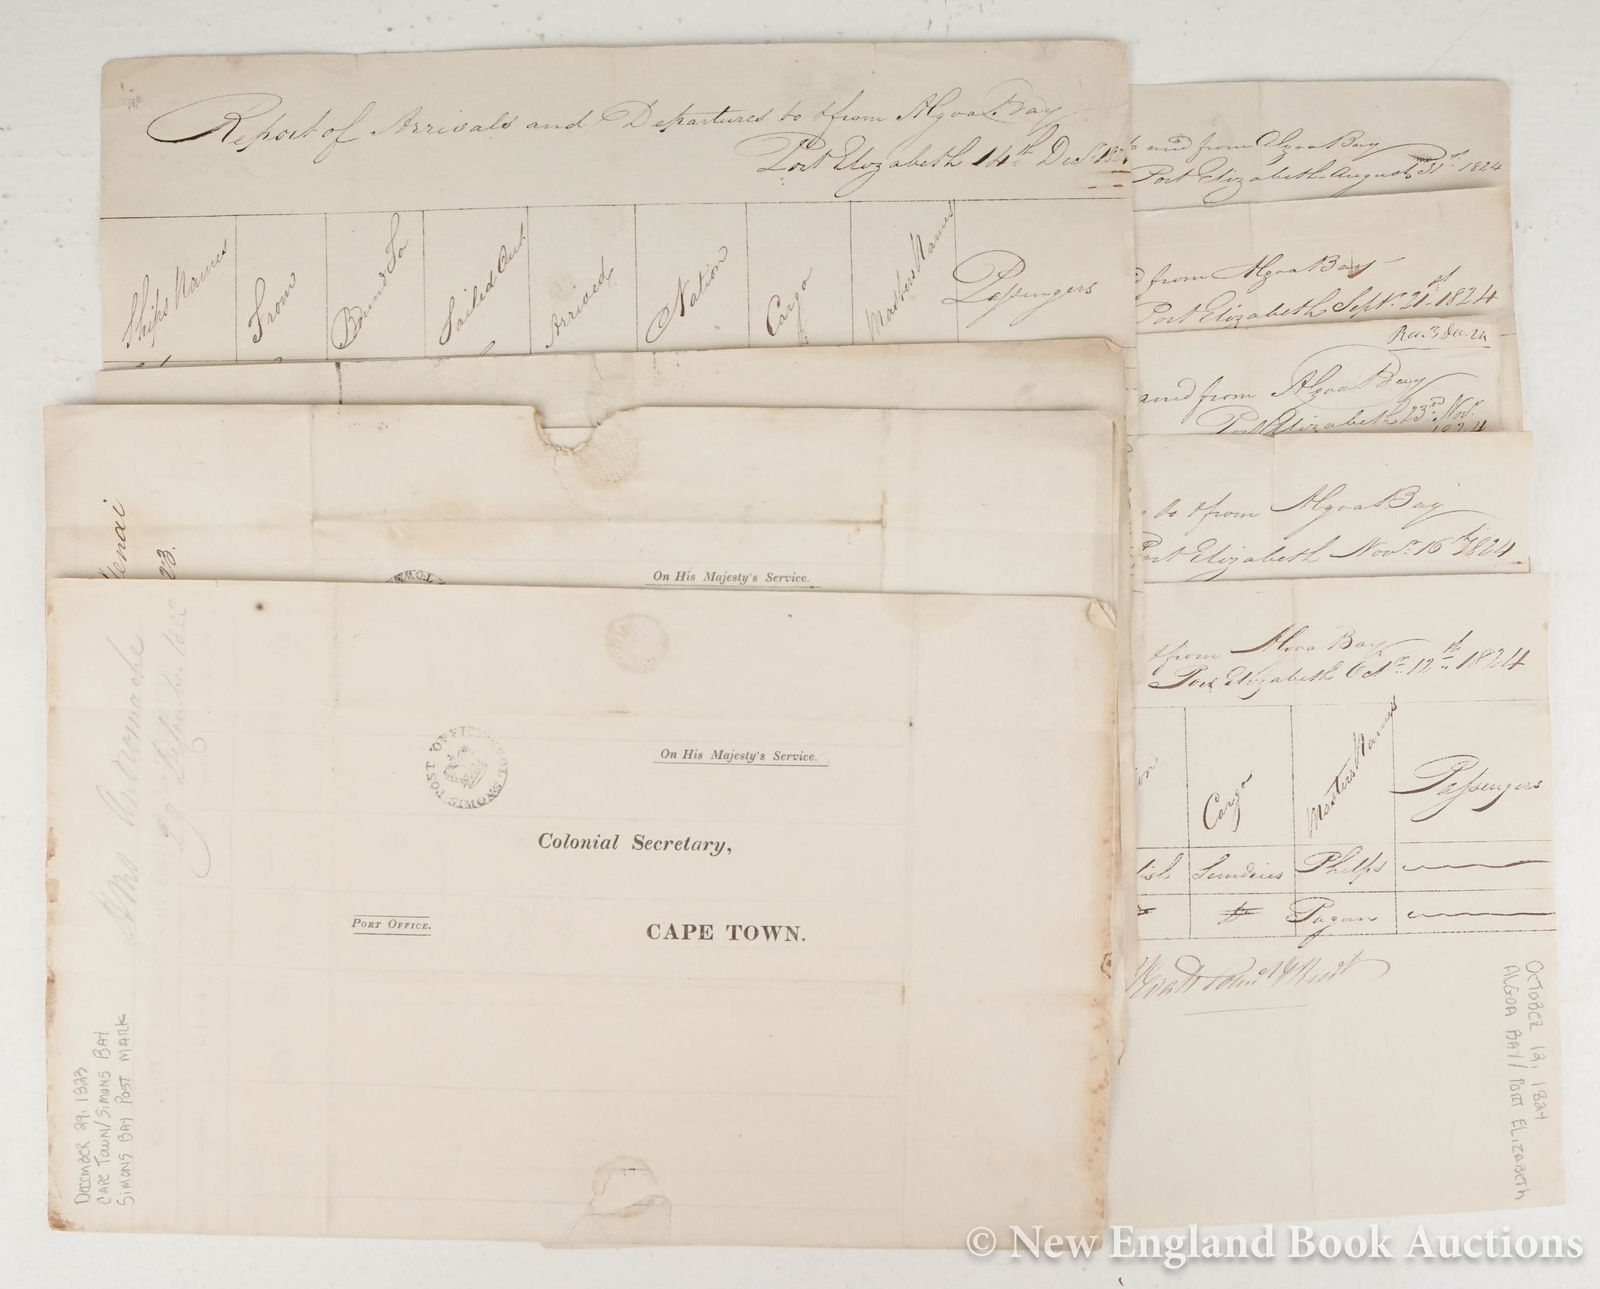 Report of Arrivals and Departures to & from Algoa Bay
Port Elizabeth 14th Decr.
Ships Names
From
Bound To
Sailed Out
Arrived
Nation
Cargo
Masters Names
Passengers
and from Algoa Bay
Port Elizabeth August 31st. 1824
from Algoa Bay
Port Elizabeth Septr. 21st 1824
Rec. 3 Dec. 24
and from Algoa Bay
Port Elizabeth 23rd Novr.
1824
to & from Algoa Bay
Port Elizabeth Novr. 16th 1824
& from Algoa Bay
Port Elizabeth Octr. 12th 1824
Cargo
Masters Names
Passengers
Sundries
Phelps
Pagan
OCTOBER 12, 1824
ALGOA BAY/ PORT ELIZABETH
23.
On His Majesty's Service.
POST OFFICE SIMONS TOWN
On His Majesty's Service.
Colonial Secretary,
PORT OFFICE.
CAPE TOWN.
DECEMBER 29, 1823
CAPE TOWN/SIMONS BAY
SIMONS BAY POST MARK
© New England Book Auctions